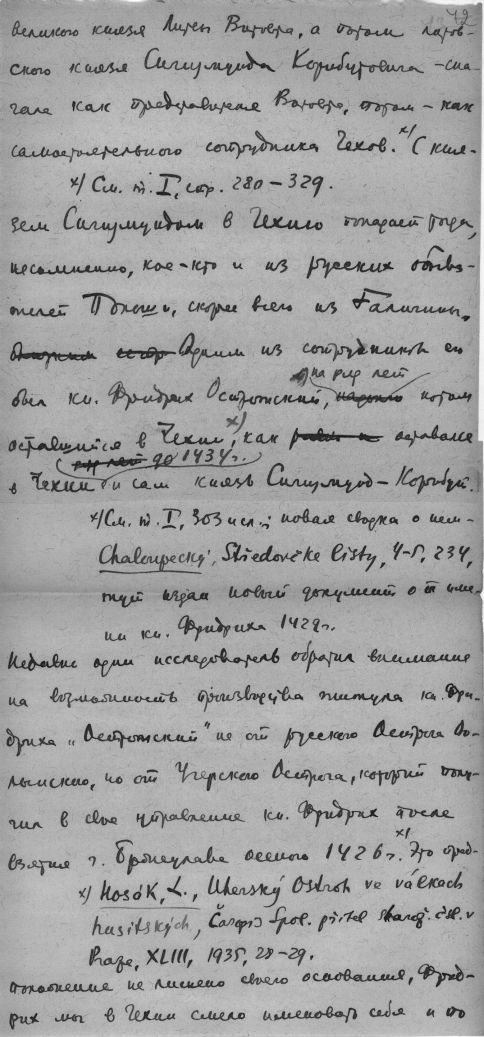 42
великого князя Литвы Витовта, а потом литов-
ского князя Сигизмунда Корибутовича – сна-
чала как представителя Витовта, потом – как
самостоятельного сотрудника Чехов. x) С кня-
x) См. т. I, стр. 280–329.
зем Сигизмундом в Чехию попадает тогда,
несомненно, кое-кто и из русских обыва-
телей Польши, скорее всего из Галичины.
Одним из сотрудников его
на ряд лет
был кн. Фридрих Острожский, потом
оставшийся в Чехии x), как оставался
до 1434 г.
в Чехии и сам князь Сигизмунд-Корибут.
x) См. т. I, 303 и сл.; новая сводка о нем –
Chaloupecký, Středověke listy, 4–5, 234,
тут издан новый документ от име-
ни кн. Фридриха 1429 г.
Недавно один исследователь обратил внимание
на возможность производства титула кн. Фри-
дриха „Острожский" не от русского Острога Во-
лынского, но от Угерского Острога, который полу-
чил в свое управление кн. Фридрих после
взятия г. Бржецлава осенью 1426 г. x) Это пред-
x) Hosák, L., Uherský Ostroh ve válkách
husitských, Časopis Spol. přátel starož. čsl. v
Praze, XLIII, 1935, 28–29.
положение не лишено своего основания, Фрид-
рих мог в Чехии смело именовать себя и по